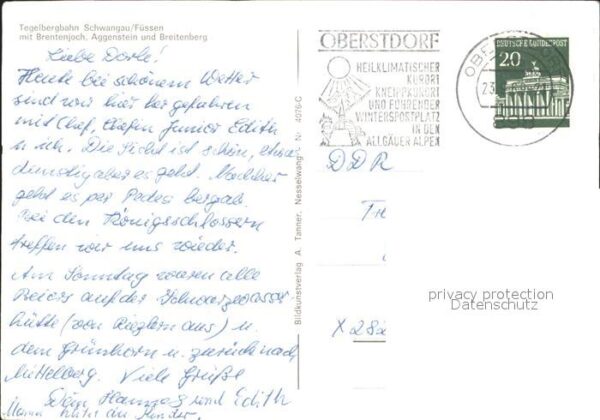 Tegelbergbahn Schwangau/Füssen
mit Brentenjoch, Aggenstein und Breitenberg
Liebe Dorle!
Heute bei schönem Wetter
sind wir hier her gefahren
mit Chef, Chefin Junior Edith
u ich. Die Sicht ist schön, etwas
dunstig aber es geht. Nachher
geht es per Pedes bergab.
bei den Königsschlössern
treffen wir uns wieder.
Am Sonntag waren alle
auf der Schwarzwasser-
hütte (von Riezlern aus) u.
dem Grünhorn u. zurück nach
Mittelberg. Viele Grüße
Dein Hannes und Edith
Bildkunstverlag A. Tanner, Nesselwang Nr. 4076-C
OBERSTDORF
HEILKLIMATISCHER
KURORT
KNEIPPKURORT
UND FÜHRENDER
WINTERSPORTPLATZ
IN DEN
ALLGÄUER ALPEN
DEUTSCHE BUNDESPOST
20
DDR
X 282
privacy protection
Datenschutz